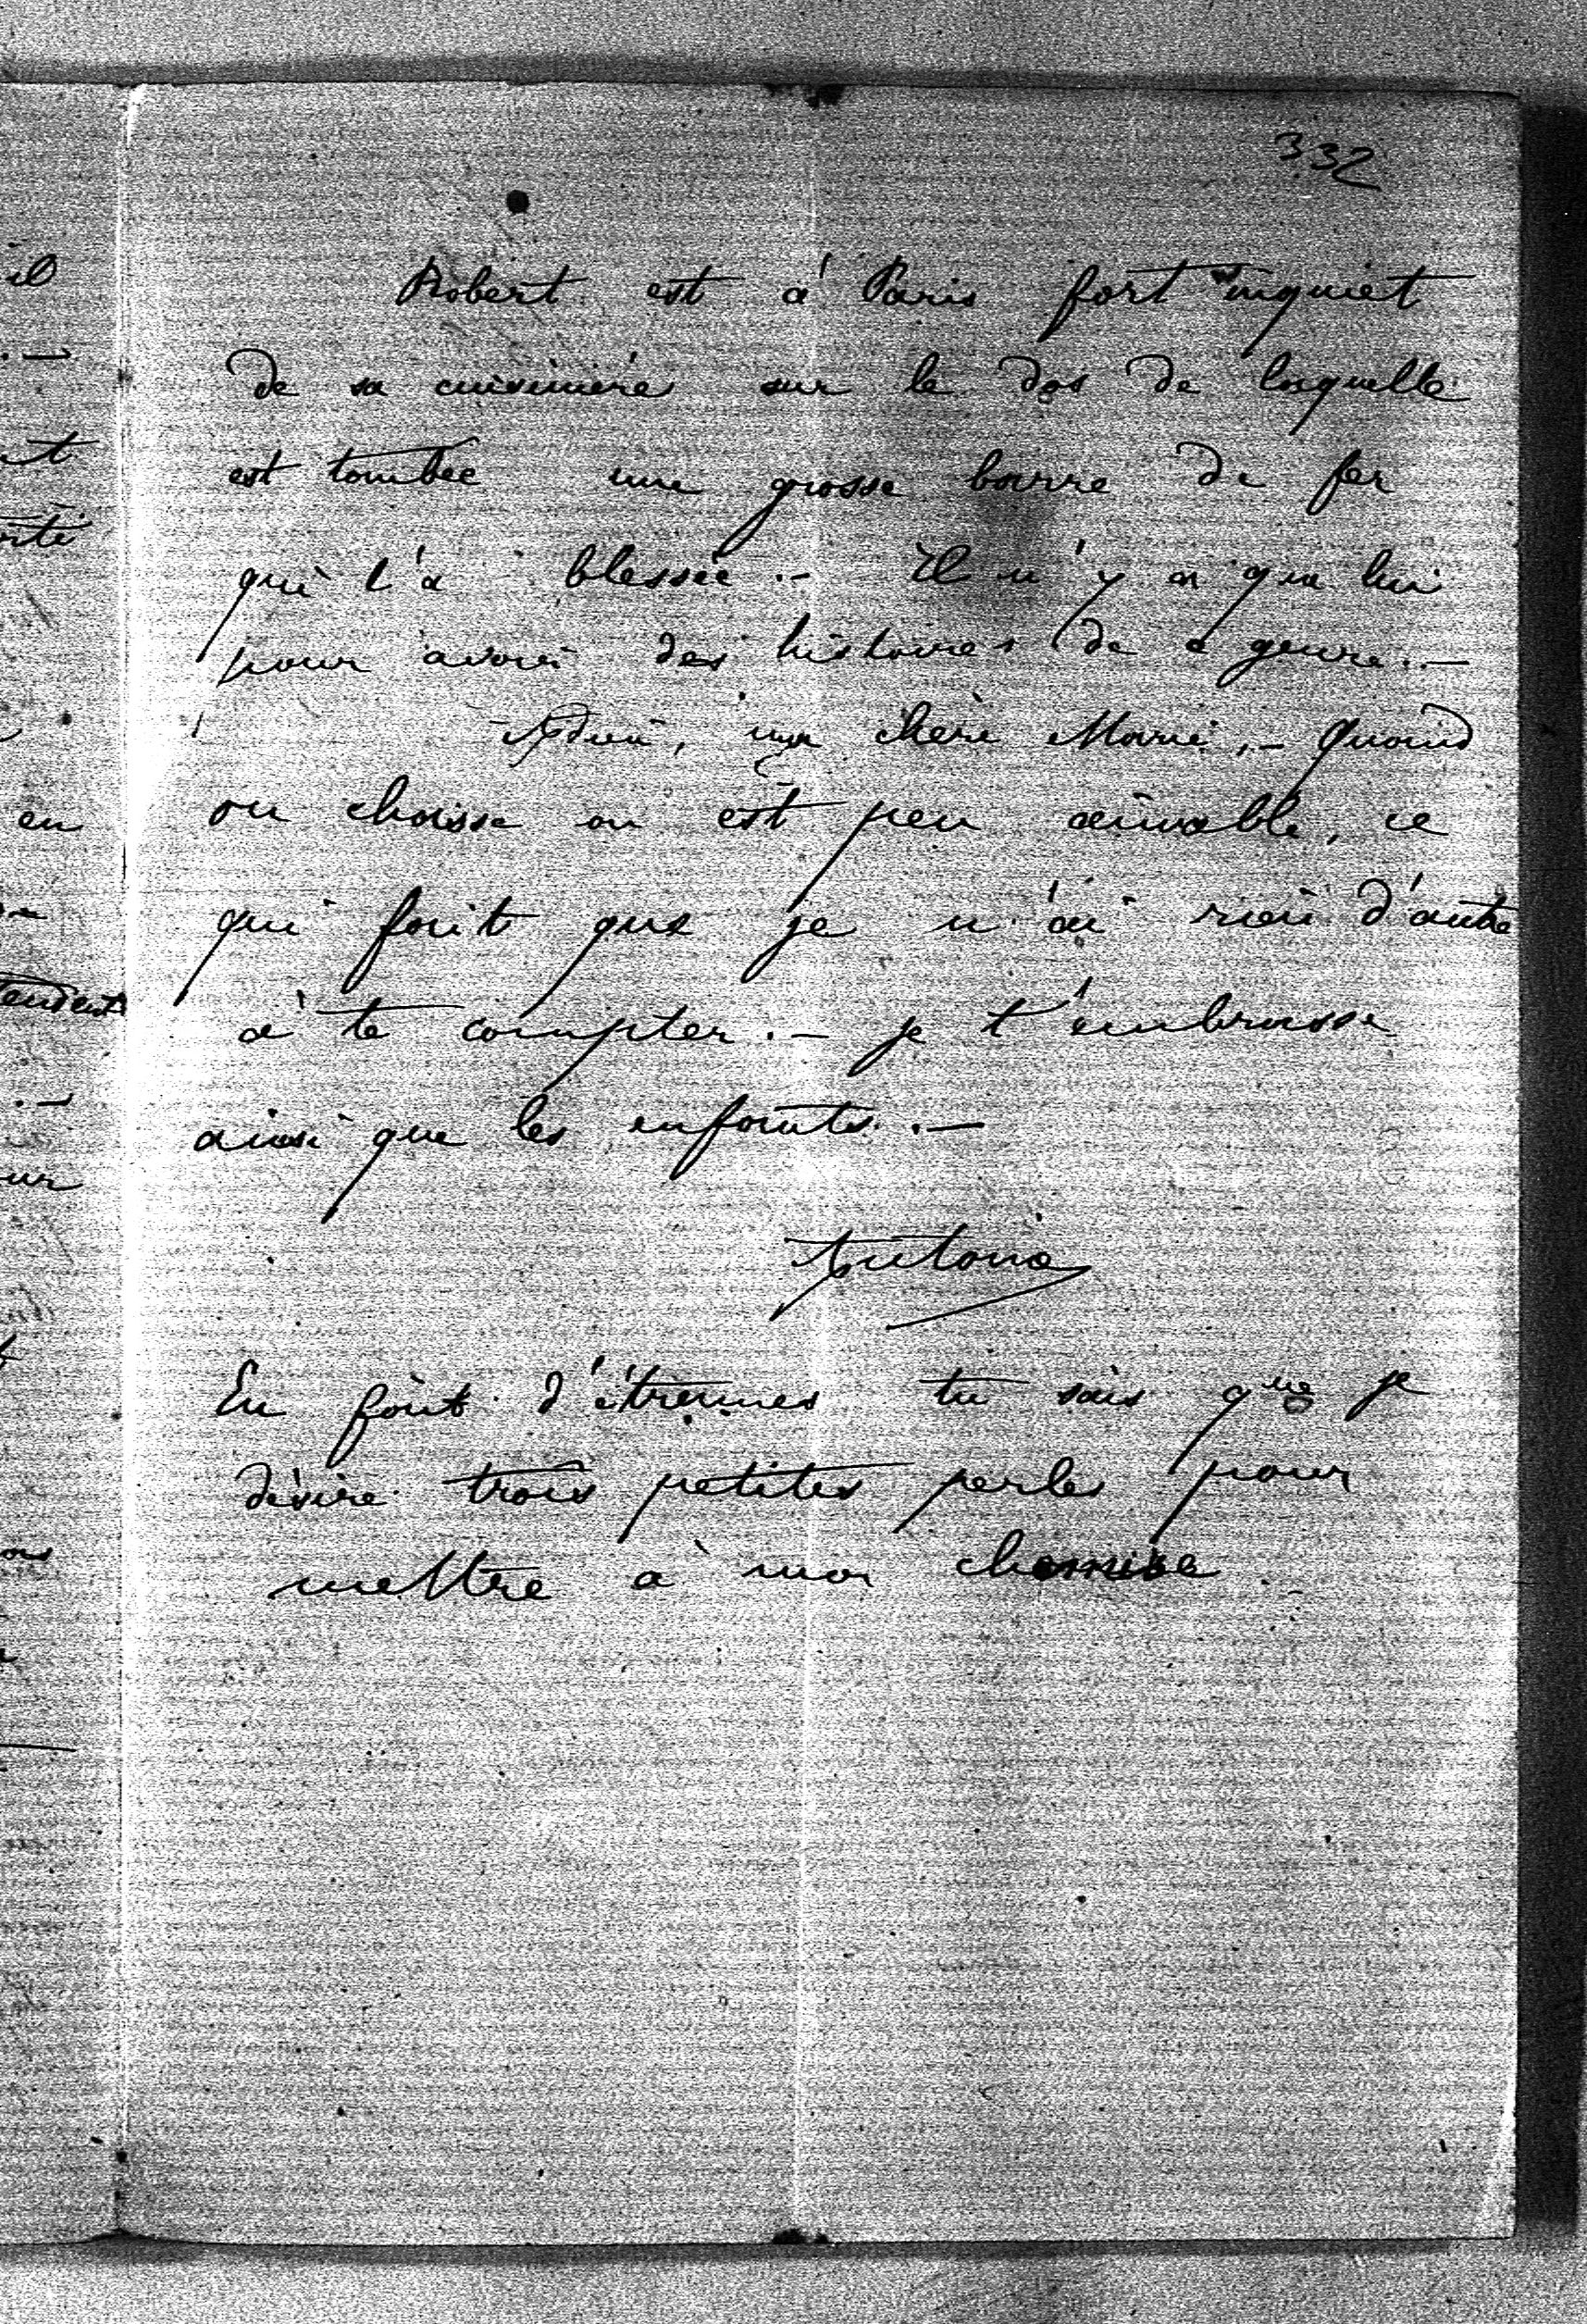 332
il
Robert est à Paris fort inquiet
de sa cuisinière sur le dos de laquelle
est tombée une grosse barre de fer
qui l'a blessée. — Il n'y a que lui
pour avoir des histoires de ce genre. —
Adieu, ma chère Marie, — Quand
on chasse on est peu aimable, ce
en
qui fait que je n'ai rien d'autre
à te compter. — Je t'embrasse
ainsi que les enfants. —
Antonia
En fait d'étrennes tu sais que je
désire trois petites perles pour
mettre à ma chemise. —